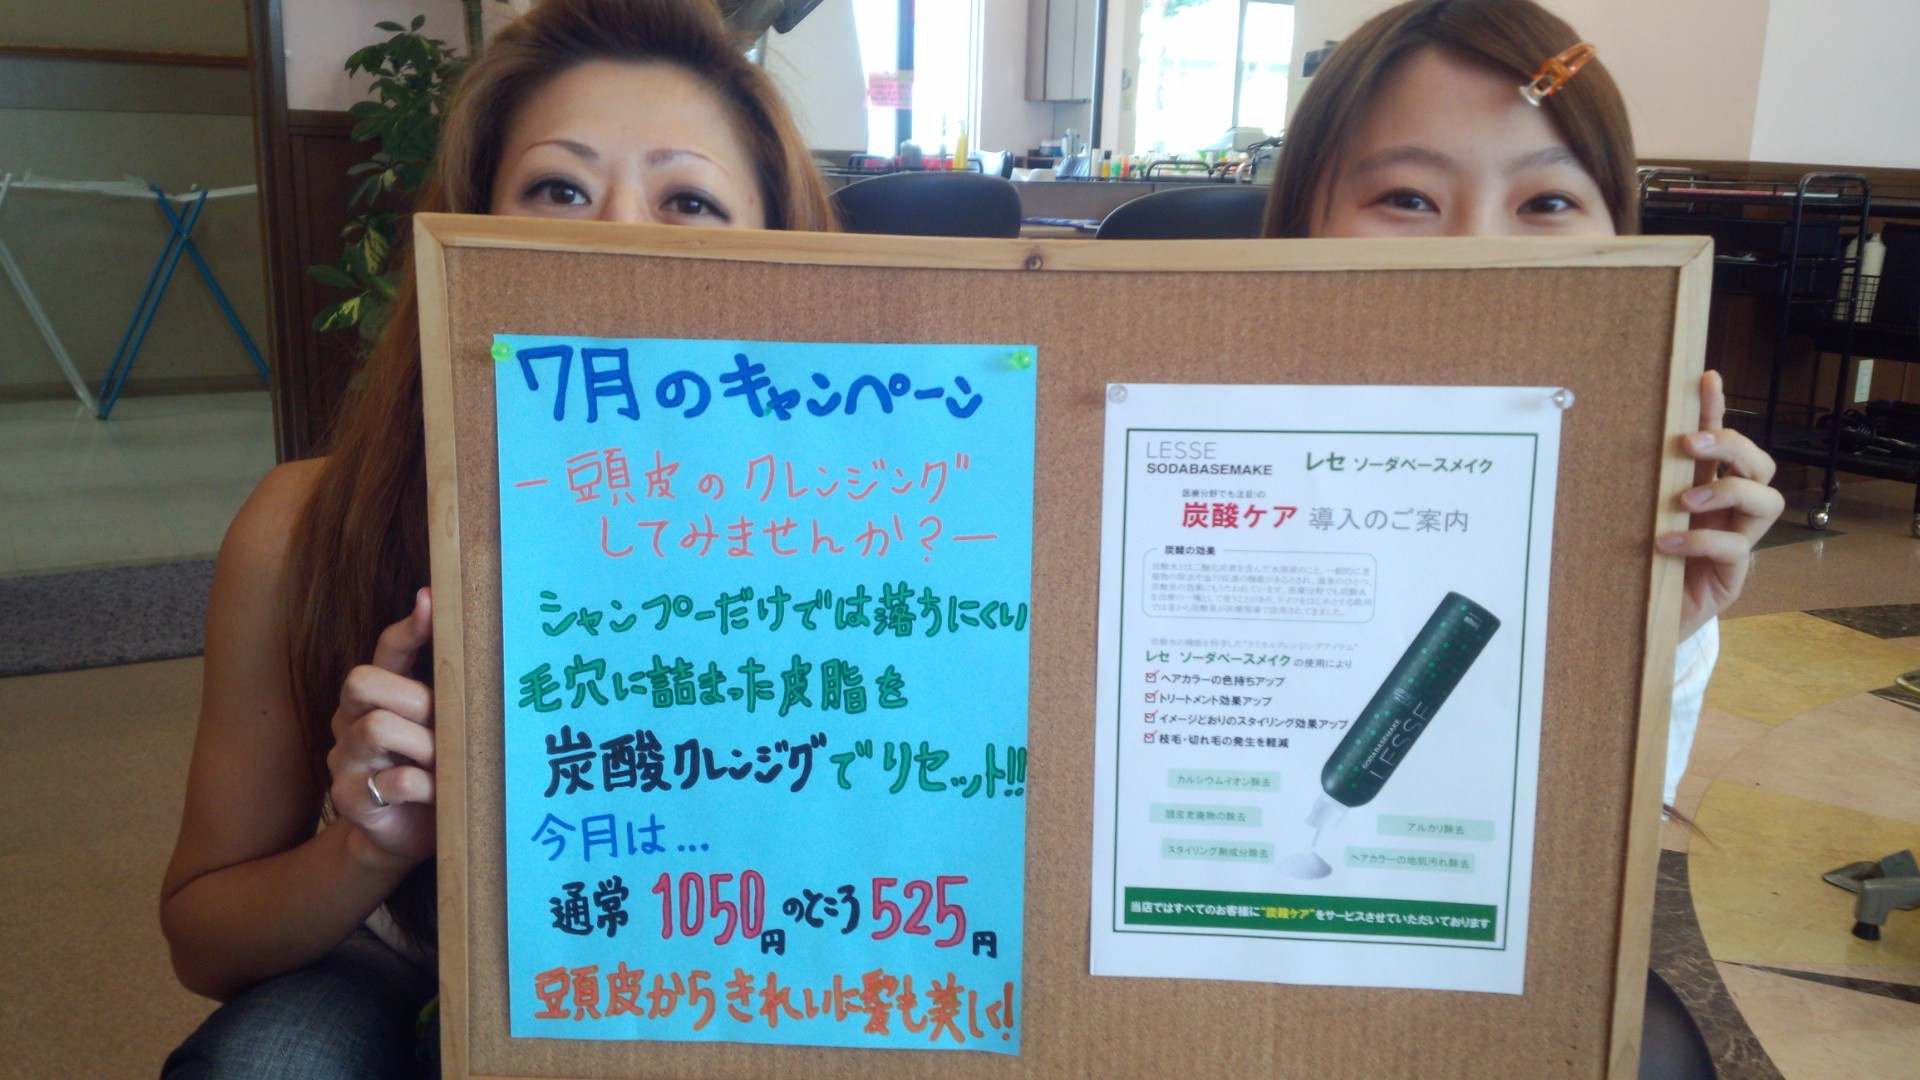 7月のキャンペーン
ー頭皮のクレンジング
してみませんか?ー
シャンプーだけでは落ちにくい
毛穴に詰まった皮脂を
炭酸クレンジングでリセット!!
今月は…
通常1050円のところ525円
頭皮からきれいに髪も美しく!
LESSE
SODABASEMAKE
レセ ソーダベースメイク
医療分野でも注目!の
炭酸ケア 導入のご案内
炭酸の効果
レセ ソーダベースメイクの使用により
ヘアカラーの色持ちアップ
トリートメント効果アップ
イメージどおりのスタイリング効果アップ
枝毛・切れ毛の発生を軽減
SODABASEMAKE
LESSE
カルシウムイオン除去
頭皮老廃物の除去
アルカリ除去
スタイリング剤成分除去
ヘアカラーの地肌汚れ除去
当店ではすべてのお客様に"炭酸ケア"をサービスさせていただいております